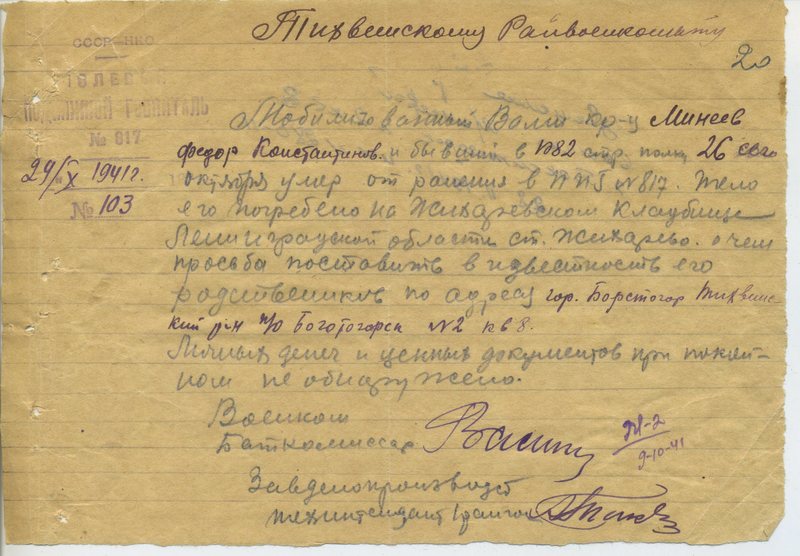 Тихвинскому Райвоенкомату
20
СССР-НКО
ПОЛЕВОЙ
ПОДВИЖНОЙ ГОСПИТАЛЬ
№ 817
29/X 1941 г.
№ 103
Мобилизованный Вами кр-ц Минеев
федор Константинов. и бывший в 1082 стр. полку 26 сего
октября умер от ранения в ППГ №817. Тело
его погребено на Жихаревском кладбище
Ленинградской области ст. Жихарево. о чем
просьба поставить в известность его
родственников по адресу гор. Тихвин
ский р-н п/о Боготогорск №2 кв 8.
Личных денег и ценных документов при покой-
ном не обнаружено.
Военком
Баткомиссар
9-10-41
Завделопроизводст
техинтендант 1 ранга